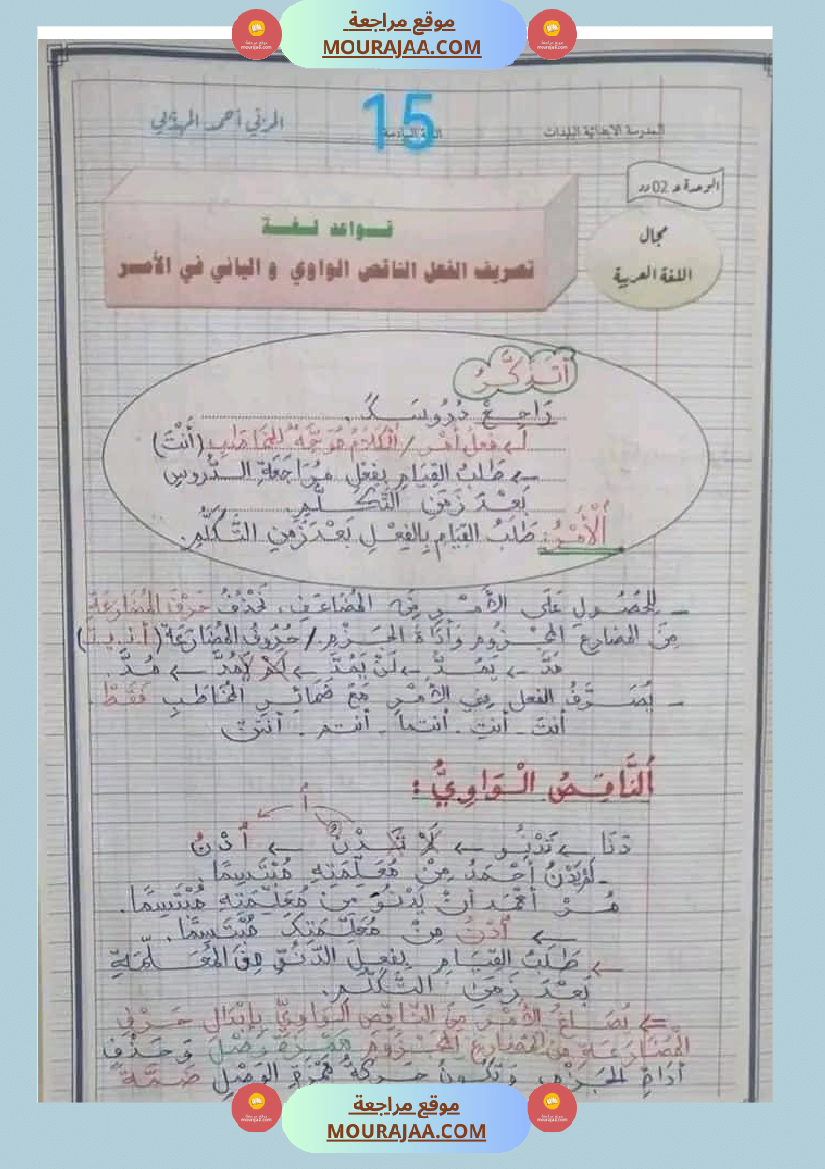 موقع مراجعة
MOURAJAA.COM
المدرسة الابتدائية
15
السنة السادسة
المربي أحمد المهذبي
الوحدة عـ 02 ـدد
مجال
اللغة العربية
قواعد لغة
تصريف الفعل الناقص الواوي و اليائي في الأمر
أَتَذَكَّرُ
رَاجِعْ دُرُوسَكَ.
فعل أمر / الكلام موجّه للمخاطب (أَنْتَ)
← طلب القيام بفعل مُرَاجَعَةِ الدّروسِ
بَعْدَ زَمَنِ التَّكَلُّمِ
الْأَمْرُ: طَلَبُ القِيَامِ بِالفِعْلِ بَعْدَ زَمَنِ التَّكَلُّمِ.
- لِلحُصُولِ عَلَى الأَمْرِ مِنَ المُضَاعَفِ، نَحْذِفُ حَرْفَ المُضَارَعَةِ
مِنَ المضارع المجْزُومِ وَأَدَاةَ الجَزْمِ / حُرُوفُ المُضَارَعَة (أ. ن. ي. ت)
مَدَّ ← يَمُدُّ ← لَنْ يَمُدَّ ← لَا تَمُدَّ ← مُدَّ.
- يُصَرَّفُ الفعل في الأَمْرِ مَعَ ضَمَائِرِ المُخَاطَبِ فَقَطْ
أنتَ - أنتِ - أنتما - أنتم - أنتنّ
اَلنَّاقِصُ الْوَاوِيُّ :
أُ
دَنَا ← تَدْنُو ← لَا تَدْنُ ← اُدْنُ
- لِيَدْنُ أَحْمَدُ مِنْ مُعَلِّمَتِهِ مُبْتَسِمًا.
مُرْ أَحْمَدَ أَنْ يَدْنُوَ مِنْ مُعَلِّمَتِهِ مُبْتَسِمًا.
← اُدْنُ مِنْ مُعَلِّمَتِكَ مُبْتَسِمًا.
← طَلَبُ القِيَامِ بِفعلِ الدّنُوِّ مِنَ المُعَلِّمَةِ
بَعْدَ زَمَنِ التَّكَلُّمِ.
← يُصَاغُ الأَمْرُ مِنَ النَّاقِصِ الْوَاوِيِّ بِإِبْدَالِ حَرْفِ
الْمُضَارَعَةِ مِنَ المُضَارِعِ المَجْزُومِ هَمْزَةَ وَصْلٍ وَحَذْفِ
أَدَاةِ الجَزْمِ وَتَكُونُ حَرَكَةُ هَمْزَةِ الوَصْلِ ضَمَّةً
موقع مراجعة
MOURAJAA.COM